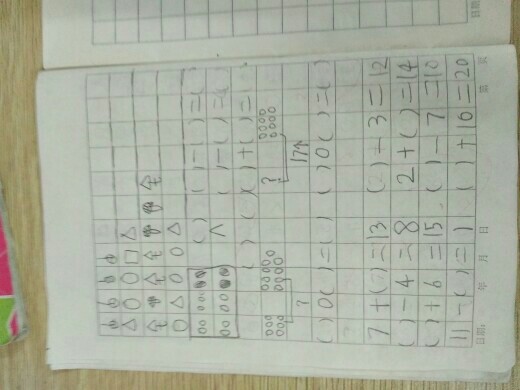 ( ) ( )-( )=( )
( )-( )=( )
( ) ( )+( )=( )
?
? 17个
( )○( )=( ) ( )○( )=( )
7+( )=13 ( )-3=12
( )-4=8 2+( )=14
( )+6=15 ( )-7=10
11-( )=1 ( )+10=20
日期: 年 月 日